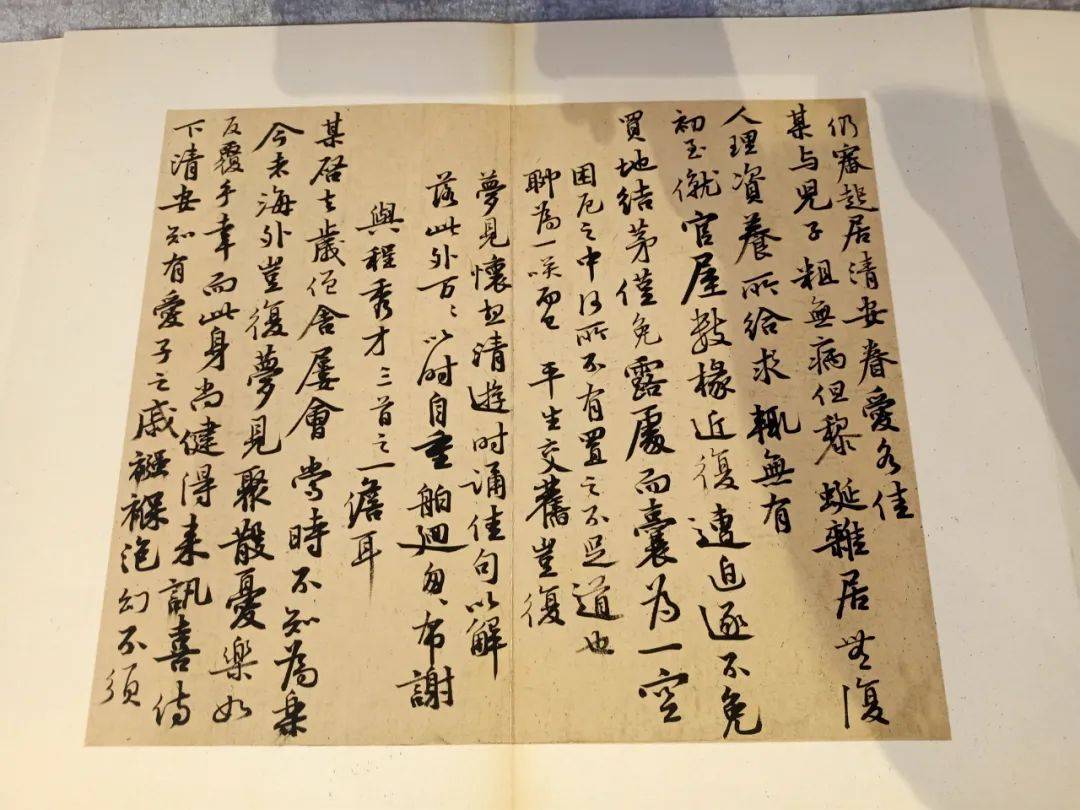 仍審起居清安眷愛各佳
某与兒子粗無病但黎蜒雜居無復
人理資養所給求輒無有
初至僦官屋數椽近復遭迫逐不免
買地結茅僅免露處而囊為一空
困厄之中何所不有置之不足道也
聊為一咲而已 平生交舊豈復
夢見懷想清遊時誦佳句以解
落此外万〻以时自重舶廻匆〻布謝
與程秀才三首之一儋耳
某啓去歲僧舍屢會當時不知為樂
今者海外豈復夢見聚散憂樂如
反覆手幸而此身尚健得来訊喜侍
下清安知有愛子之戚襁褓泡幻不須